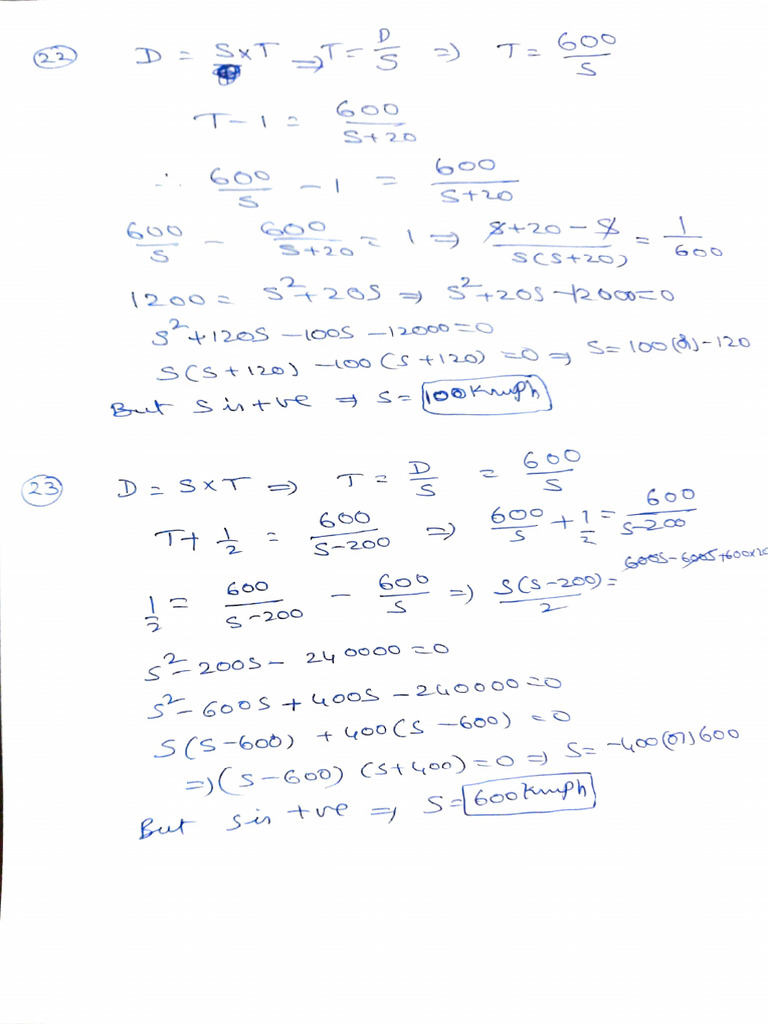 22 D = S×T ⇒ T = D/S ⇒ T = 600/S
T - 1 = 600/S+20
∴ 600/S - 1 = 600/S+20
600/S - 600/S+20 = 1 ⇒ S+20-S/S(S+20) = 1/600
1200 = S²+20S ⇒ S²+20S-12000=0
S²+120S-100S-12000=0
S(S+120)-100(S+120)=0 ⇒ S=100(or)-120
But S is +ve ⇒ S= 100Kmph
23 D = S×T ⇒ T = D/S = 600/S
T+ 1/2 = 600/S-200 ⇒ 600/S + 1/2 = 600/S-200
1/2 = 600/S-200 - 600/S ⇒ S(S-200)/2 = 600S-600S+600×20
S²-200S-240000=0
S²-600S+400S-240000=0
S(S-600)+400(S-600)=0
⇒(S-600)(S+400)=0 ⇒ S=-400(or)600
But S is +ve ⇒ S= 600Kmph